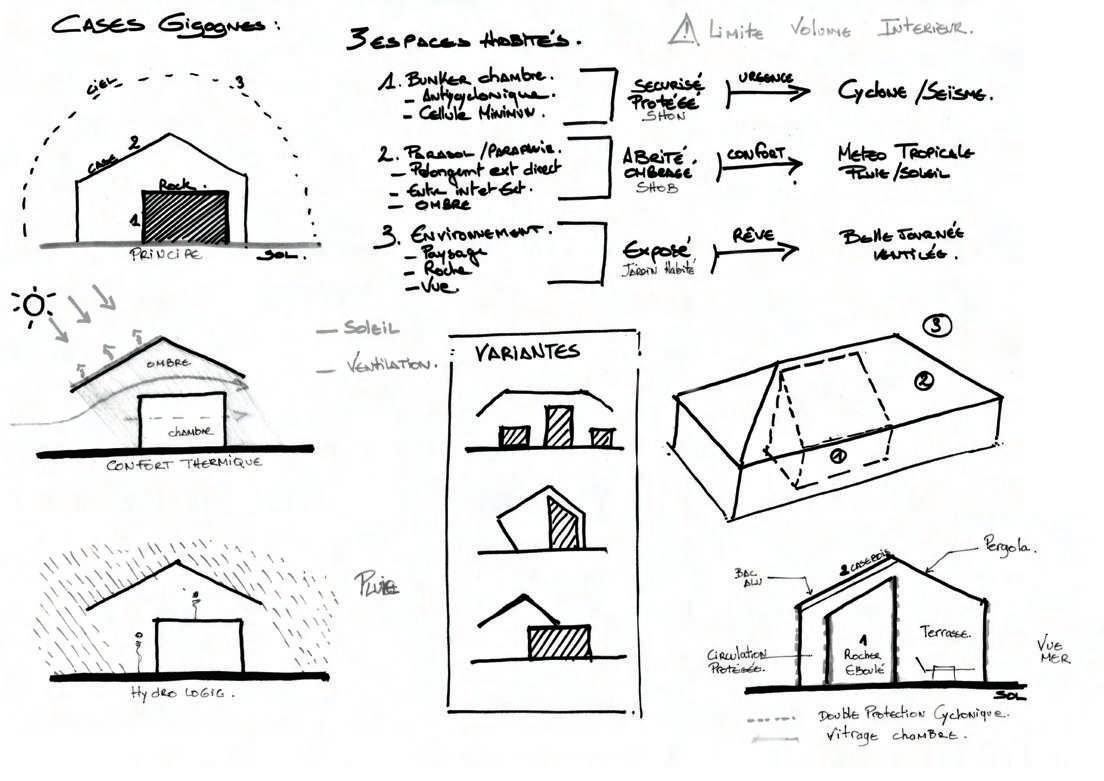 CASES GIGOGNES :
CIEL 3
CASE 2
ROCK.
1
PRINCIPE SOL.
3 ESPACES HABITÉS.
⚠ LIMITE VOLUME INTERIEUR.
1. BUNKER CHAMBRE.
– ANTICYCLONIQUE.
– CELLULE MINIMUM.
SECURISÉ
PROTÉGÉ
SHON
URGENCE
CYCLONE / SEISME.
2. PARASOL / PARAPLUIE.
– POLONGEMT EXT DIRECT
– ENTRE INT ET EXT.
– OMBRE
ABRITÉ.
OMBRAGE
SHOB
CONFORT
METEO TROPICALE
PLUIE / SOLEIL
3. ENVIRONNEMENT.
– PAYSAGE
– ROCHE
– VUE.
EXPOSÉ
JARDIN HABITÉ
RÊVE
BELLE JOURNÉE
VENTILÉE.
OMBRE
CHAMBRE
CONFORT THERMIQUE
– SOLEIL
– VENTILATION.
PLUIE
HYDRO LOGIC.
VARIANTES
3
2
1
BAC
ALU
2 CASE BOIS
PERGOLA.
CIRCULATION
PROTEGÉE.
1
ROCHER
EBOULÉ
TERRASSE.
VUE
MER
SOL
DOUBLE PROTECTION CYCLONIQUE.
VITRAGE CHAMBRE.